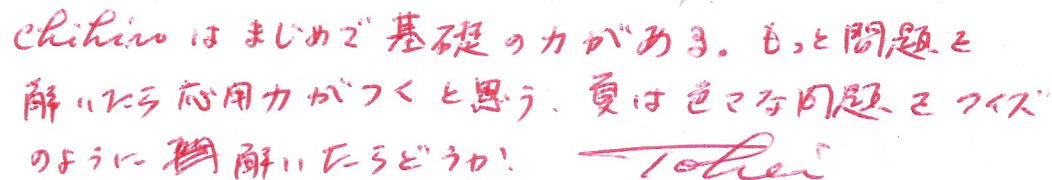 Chihiro は まじめで 基礎の力がある。もっと問題を
解いたら応用力がつくと思う、夏は色々な問題をクイズ
のように 解いたらどうか!　Tohei